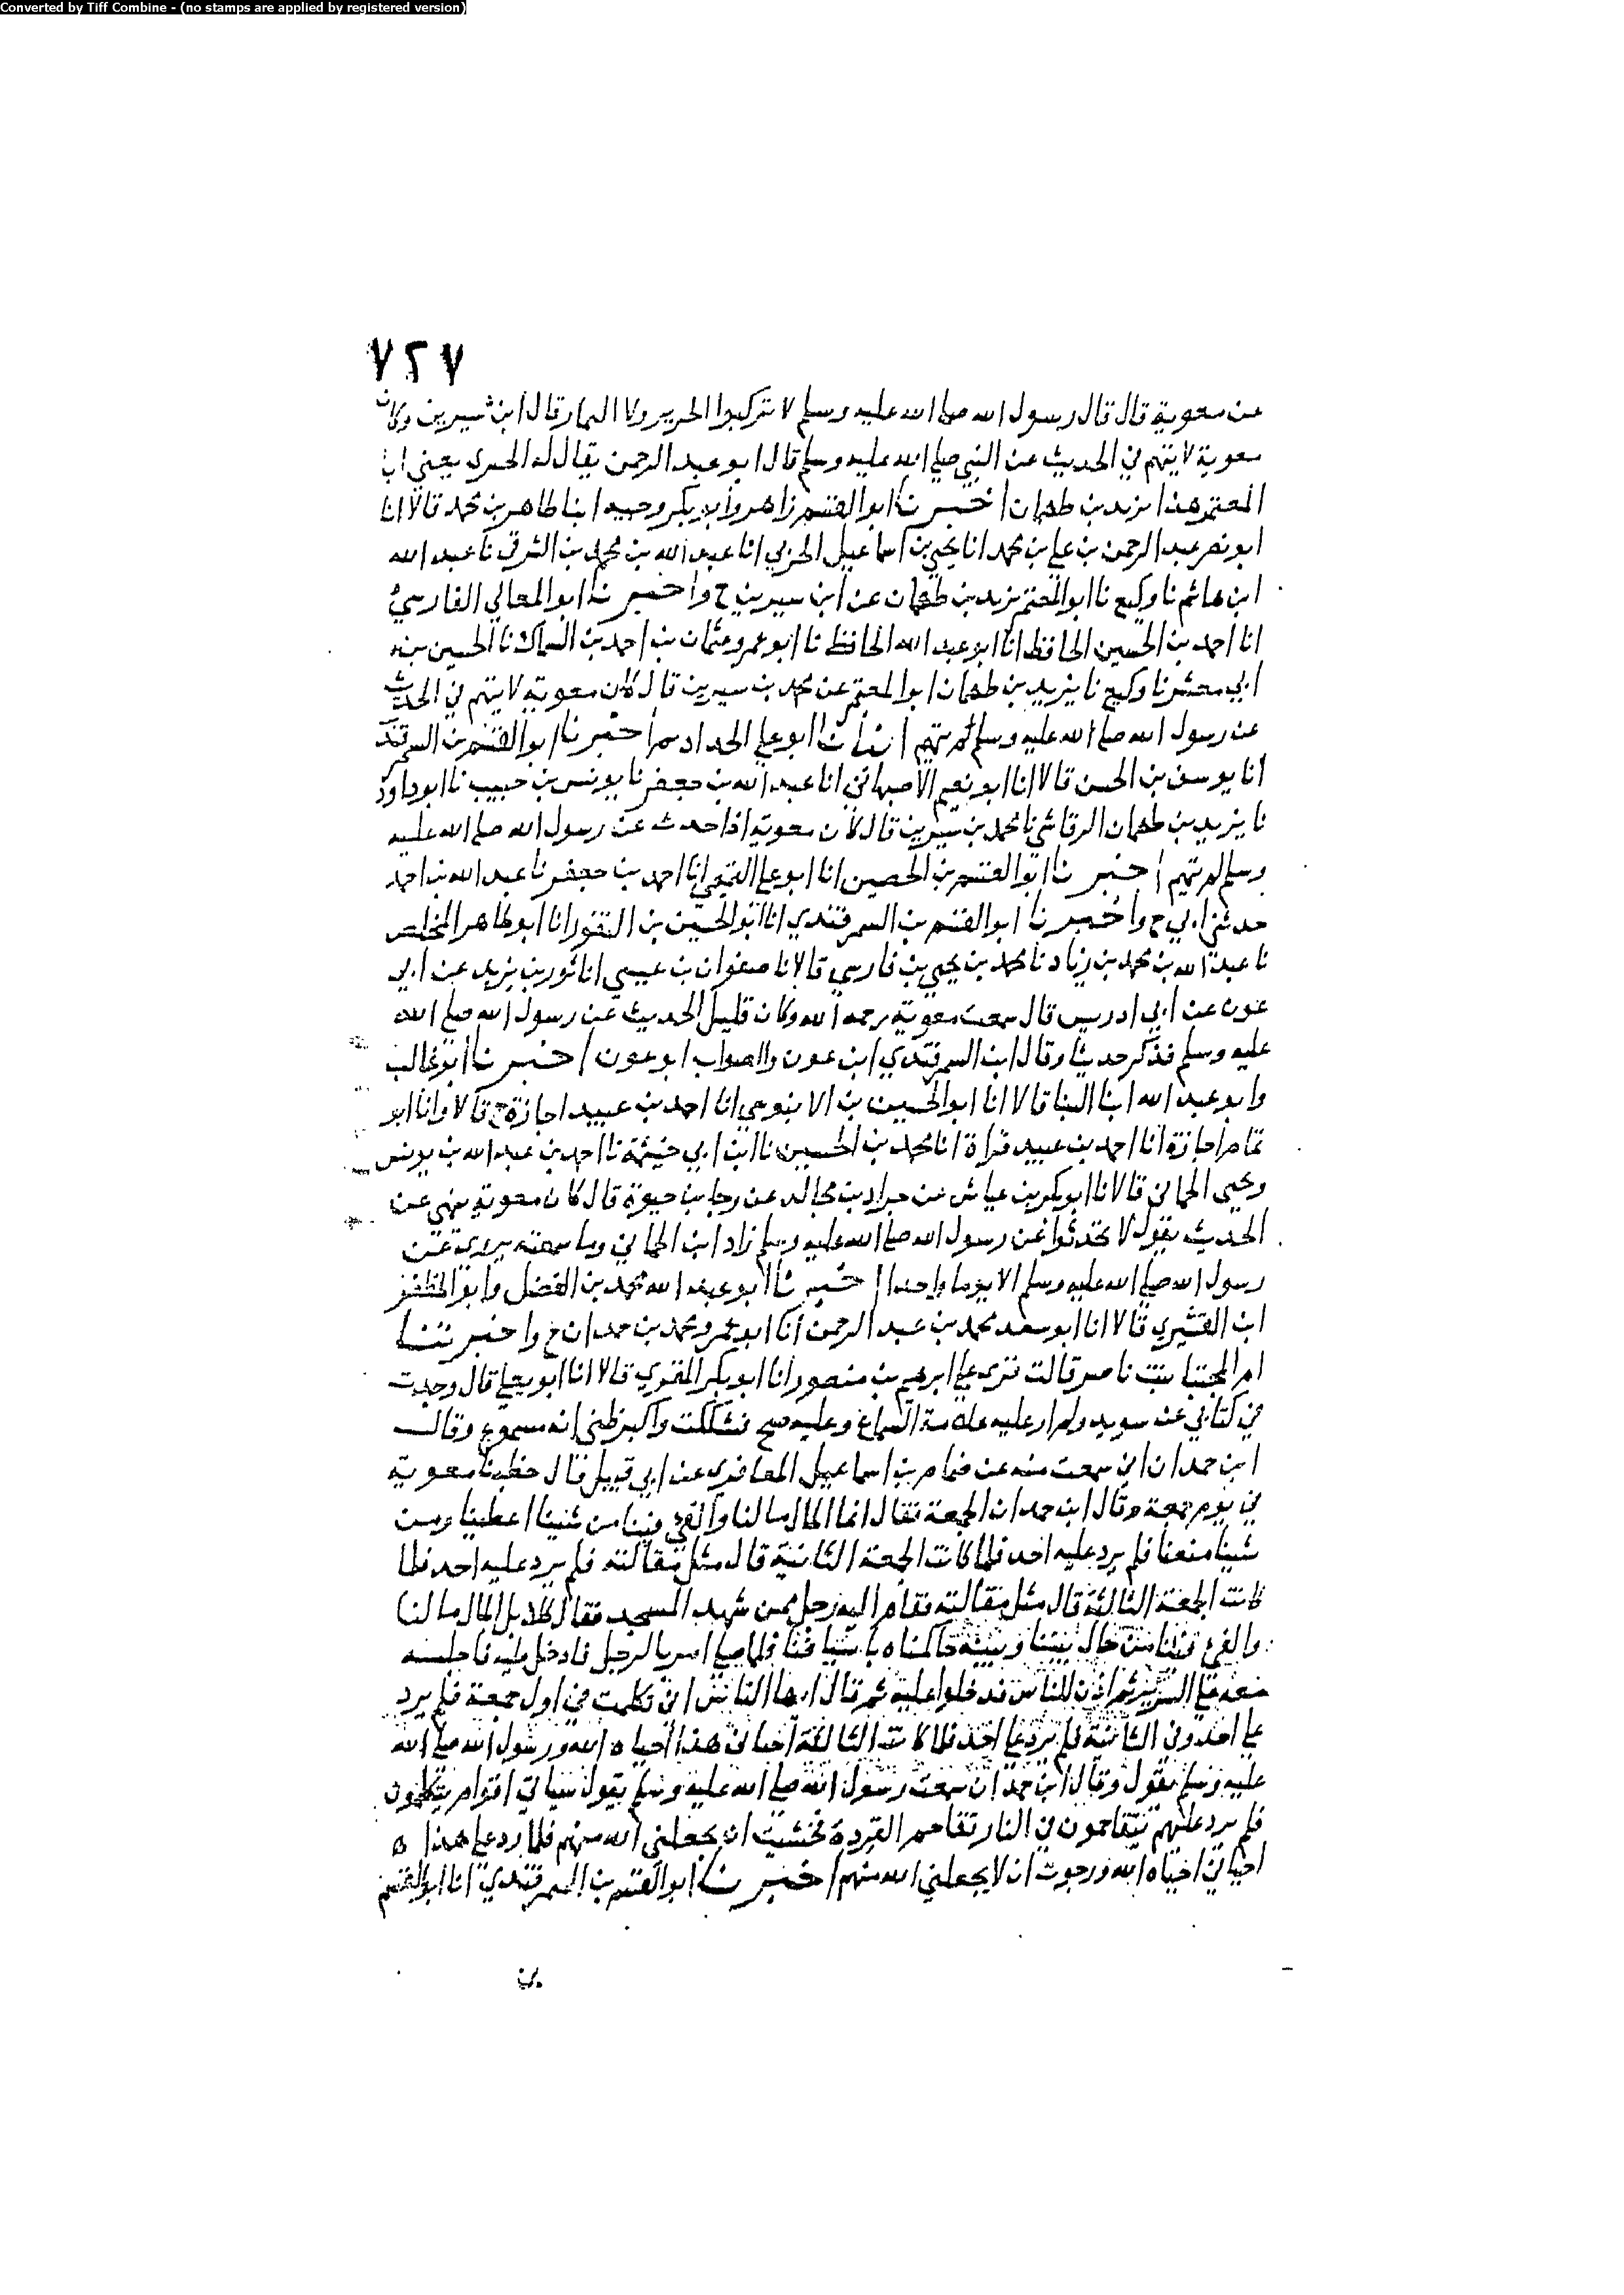 Converted by Tiff Combine - (no stamps are applied by registered version)
٧٢٧
عن معوية قال قال رسول الله صلى الله عليه وسلم لا تركبوا الحرير ولا النمار قال ابن سيرين وكان
معوية لا يتهم في الحديث عن النبي صلى الله عليه وسلم قال ابو عبد الرحمن يقال له الحبري يعني ابا
المعتمر هذا يزيد بن طهمان اخبرنا ابو القسم زاهر وابو بكر وجيه ابنا طاهر بن محمد قالا انا
ابو نصر عبد الرحمن بن علي بن محمد انا يحيى بن اسماعيل الحربي انا عبد الله بن محمد بن الشرقي نا عبد الله
ابن هاشم نا وكيع نا ابو المعتمر يزيد بن طهمان عن ابن سيرين ح واخبرنا ابو المعالي الفارسي
انا احمد بن الحسين الحافظ انا ابو عبد الله الحافظ نا ابو عمرو عثمان بن احمد بن السماك نا الحسين بن
ابي معشر نا وكيع نا يزيد بن طهمان ابو المعتمر عن محمد بن سيرين قال كان معوية لا يتهم في الحديث
عن رسول الله صلى الله عليه وسلم لم يتهم انبانا ابو علي الحداد ثم اخبرنا ابو القسم بن السمرقندي
انا يوسف بن الحسن قالا انا ابو نعيم الاصبهاني انا عبد الله بن جعفر نا يونس بن حبيب نا ابو داود
نا يزيد بن طهمان الرقاشي نا محمد بن سيرين قال كان معوية اذا حدث عن رسول الله صلى الله عليه
وسلم لم يتهم اخبرنا ابو القسم بن الحصين انا ابو علي التميمي انا احمد بن جعفر نا عبد الله بن احمد
حدثني ابي ح واخبرنا ابو القسم بن السمرقندي انا ابو الحسين بن النقور انا ابو طاهر المخلص
نا عبد الله بن محمد بن زياد نا محمد بن يحيى بن فارس قالا نا صفوان بن عيسى انا ثور بن يزيد عن ابي
عون عن ابي ادريس قال سمعت معوية رحمه الله وكان قليل الحديث عن رسول الله صلى الله
عليه وسلم فذكر حديثا وقال ابن السمرقندي ابن عون والصواب ابو عون اخبرنا ابو غالب
وابو عبد الله ابنا البنا قالا انا ابو الحسين بن الابنوسي انا احمد بن عبيد اجازة ح قالا وانا ابو
تمام اجازة انا احمد بن عبيد قراة انا محمد بن الحسين نا ابن ابي خيثمة نا احمد بن عبد الله بن يونس
ويحيى الحماني قالا نا ابو بكر بن عياش عن جراد بن مجالد عن رجا بن حيوة قال كان معوية ينهى عن
الحديث يقول لا تحدثوا عن رسول الله صلى الله عليه وسلم زاد ابن الحماني وما سمعته يروي عن
رسول الله صلى الله عليه وسلم الا يوما واحدا اخبرنا ابو عبد الله محمد بن الفضل وابو المظفر
ابن القشيري قالا انا ابو سعد محمد بن عبد الرحمن انا ابو عمرو محمد بن حمدان ح واخبرتنا
ام المجتبا بنت ناصر قالت قرئ علي ابرهيم بن منصور انا ابو بكر المقري قالا انا ابو يعلى قال وجدت
في كتابي عن سويد ولم ار عليه علامة السماع وعليه صح فشككت واكبر ظني انه مسموع وقال
ابن حمدان اني سمعت منه عن ضمام بن اسماعيل المعافري عن ابي قبيل قال خطبنا معوية
في يوم جمعة وقال ابن حمدان الجمعة فقال انما المال مالنا والفي فينا من شينا اعطينا ومن
شينا منعنا فلم يرد عليه احد فلما كانت الجمعة الثانية قال مثل مقالته فلم يرد عليه احد فلما
كانت الجمعة الثالثة قال مثل مقالته فقام اليه رجل ممن شهد المسجد فقال كلا بل المال مالنا
والفي فيئنا من حال بيننا وبينه حاكمناه باسيافنا فلما صلى امر بالرجل فادخل عليه فاجلسه
معه على السرير ثم اذن للناس فدخلوا عليه ثم قال ايها الناس اني تكلمت في اول جمعة فلم يرد
علي احد وفي الثانية فلم يرد علي احد فلما كانت الثالثة احياني هذا احياه الله ورسول الله صلى الله
عليه وسلم يقول وقال ابن حمدان سمعت رسول الله صلى الله عليه وسلم يقول سياتي اقوام يتكلمون
فلم يرد عليهم يتقاحمون في النار تقاحم القردة فخشيت ان يجعلني الله منهم فلما رد علي هذا ه
احياني احياه الله ورجوت ان لا يجعلني الله منهم اخبرنا ابو القسم بن السمرقندي انا ابو القسم